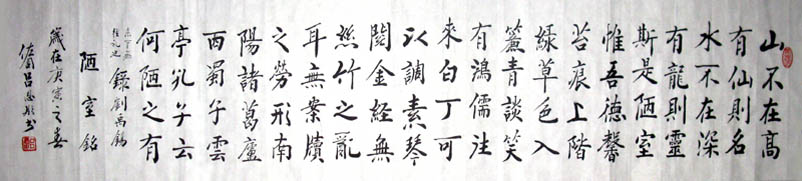 山不在高
有仙則名
水不在深
有龍則靈
斯是陋室
惟吾德馨
苔痕上階
綠草色入
簾青談笑
有鴻儒往
來白丁可
以調素琴
閱金經無
絲竹之亂
耳無案牘
之勞形南
陽諸葛廬
西蜀子雲
亭孔子云
何陋之有
錄劉禹錫
陋室銘
歲在庚寅之春
呂書